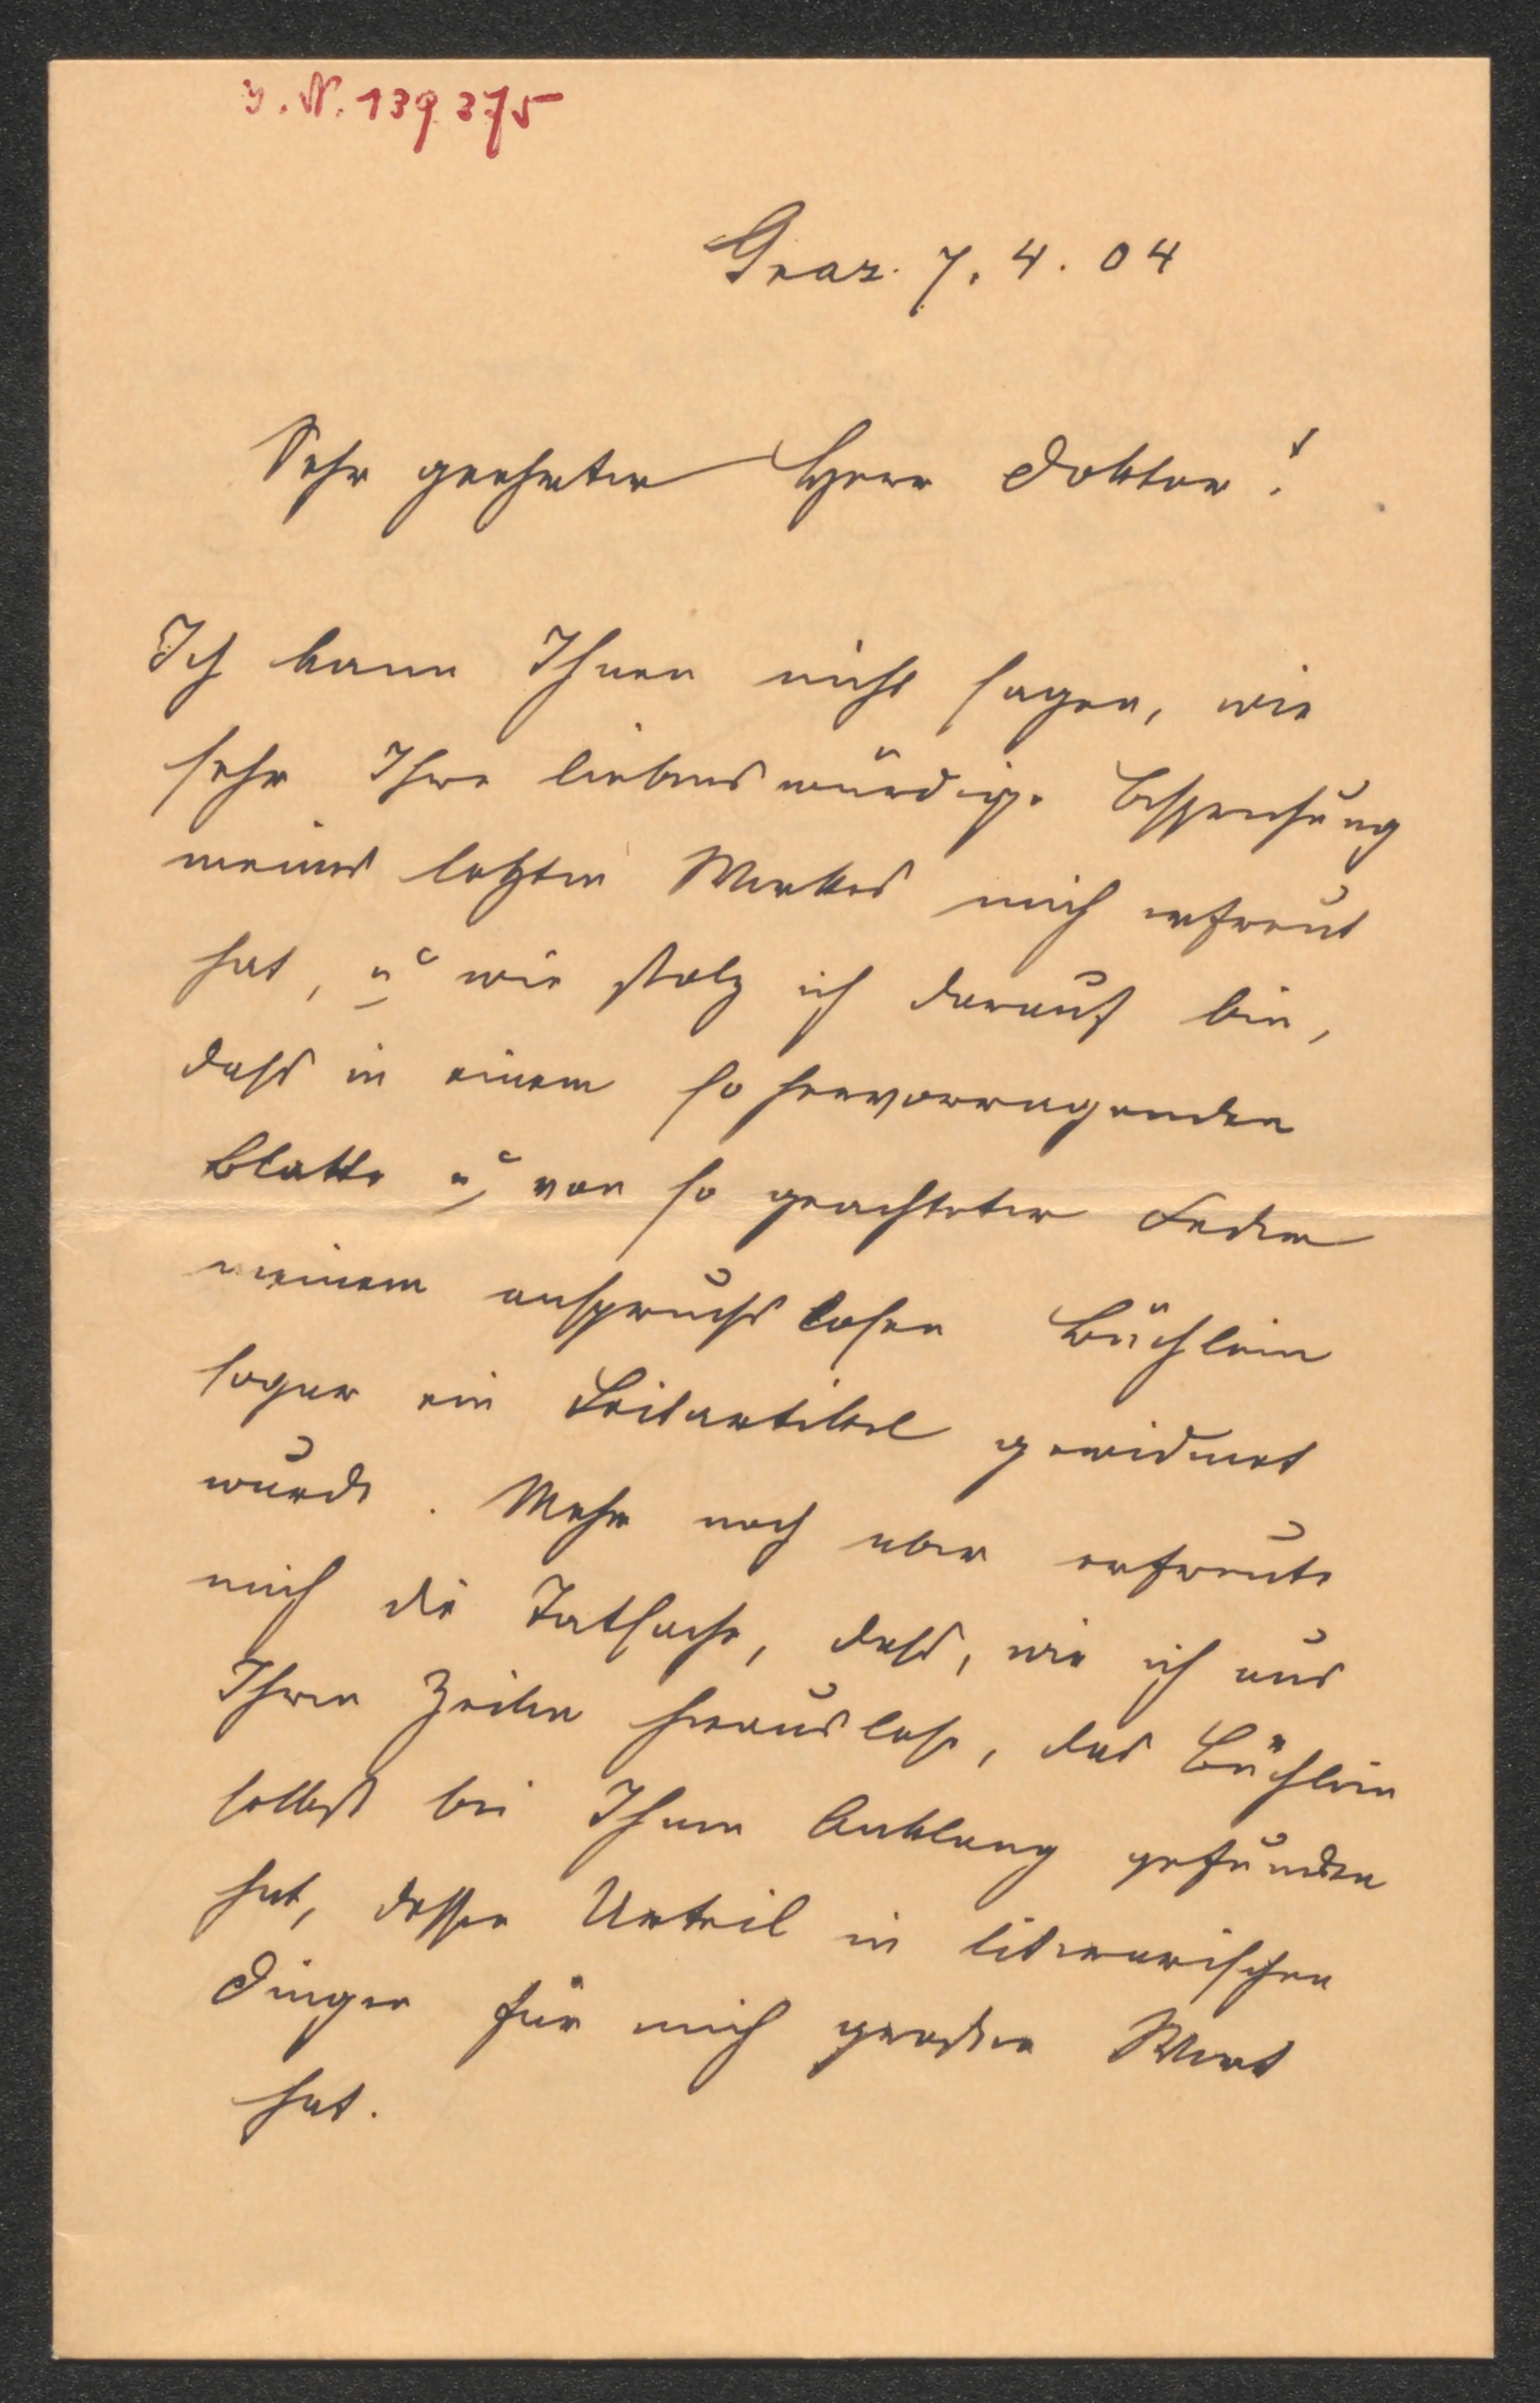 J. N. 139375
Graz. 7. 4. 04
Sehr geehrter Herr Doktor!
Ich kann Ihnen nicht sagen, wie
sehr Ihre liebenswürdige Besprechung
meines letzten Werkes mich erfreut
hat, u. wie stolz ich darauf bin,
dass in einem so hervorragenden
Blatte u. von so geachteter Feder
meinem anspruchslosen Büchlein
sogar ein Leitartikel gewidmet
wurde. Mehr noch aber erfreute
mich die Tatsache, dass, wie ich aus
Ihren Zeilen herauslese, das Büchlein
selbst bei Ihnen Anklang gefunden
hat, dessen Urteil in literarischen
Dingen für mich grossen Wert
hat.